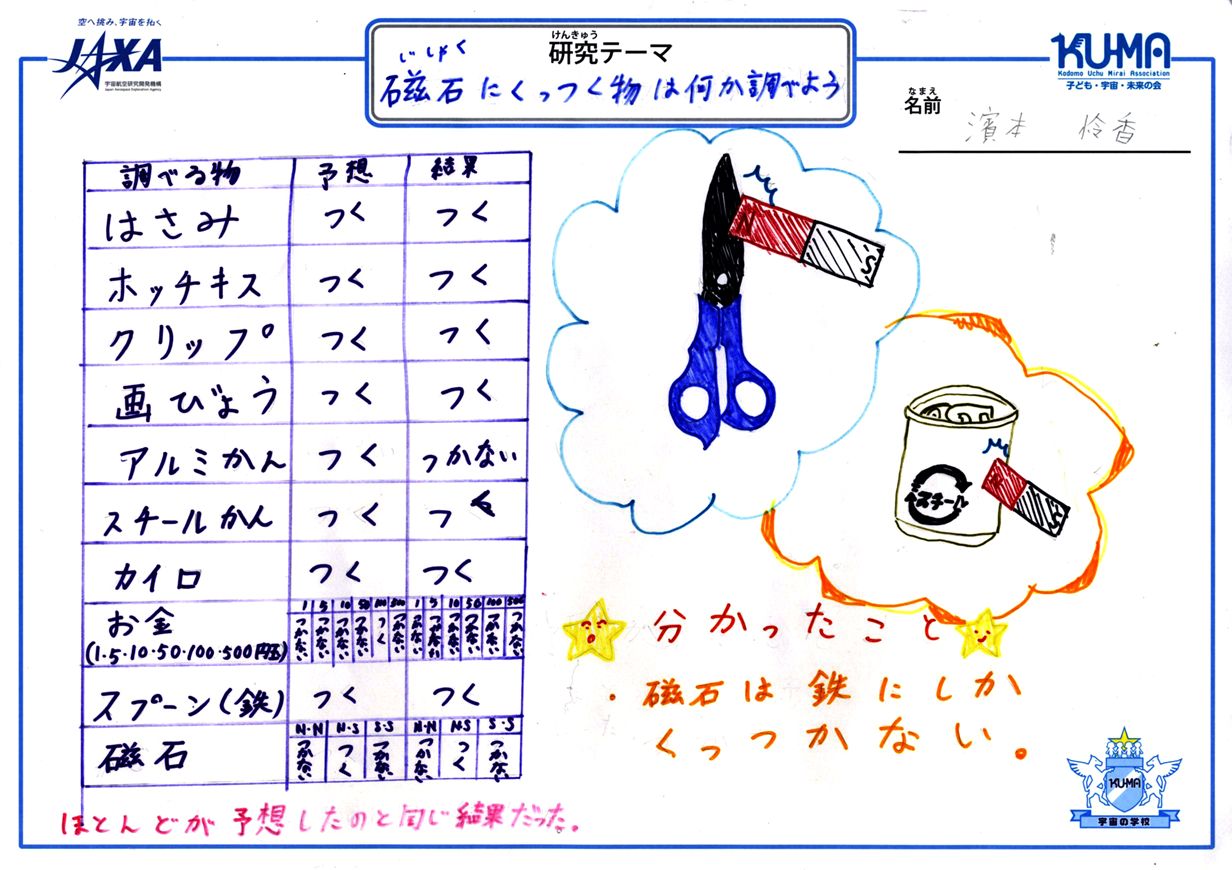 空へ挑み、宇宙を拓く
JAXA
宇宙航空研究開発機構
Japan Aerospace Exploration Agency
けんきゅう
研究テーマ
じしゃく
磁石にくっつく物は何か調べよう
KU-MA
Kodomo Uchu Mirai Association
子ども・宇宙・未来の会
なまえ
名前 濱本 怜香
調べる物 予想 結果
はさみ つく つく
ホッチキス つく つく
クリップ つく つく
画びょう つく つく
アルミかん つく つかない
スチールかん つく つく
カイロ つく つく
お金 1 5 10 50 100 500 1 5 10 50 100 500
(1・5・10・50・100・500円玉) つかない つかない つかない つかない つく つかない つかない つかない つかない つかない つかない つかない
スプーン(鉄) つく つく
N・N N・S S・S N・N N・S S・S
磁石 つかない つく つかない つかない つく つかない
ほとんどが予想したのと同じ結果だった。
N S
スチール
N S
分かったこと
・磁石は鉄にしか
くっつかない。
KU-MA
宇宙の学校